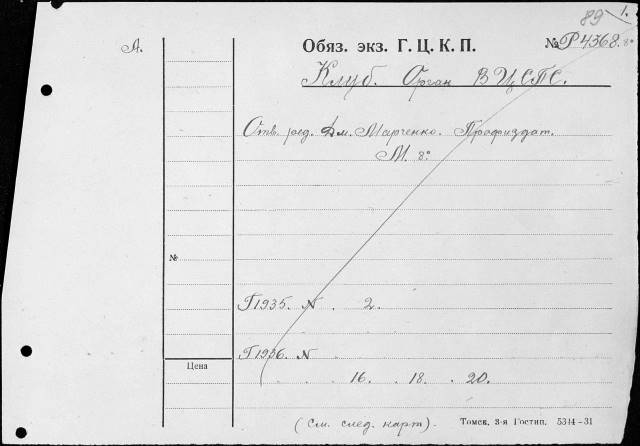 89 1.
А. Обяз. экз. Г. Ц. К. П. № Р4368. 8°
Клуб. Орган ВЦСПС.
Отв. ред. Дм. Марченко. Профиздат.
М. 8°
№
Г1935. N . 2.
Г1936. N .
Цена
. . 16. . 18. . 20.
(См. след. карт). Томск, 3-я Гостип. 5344-31